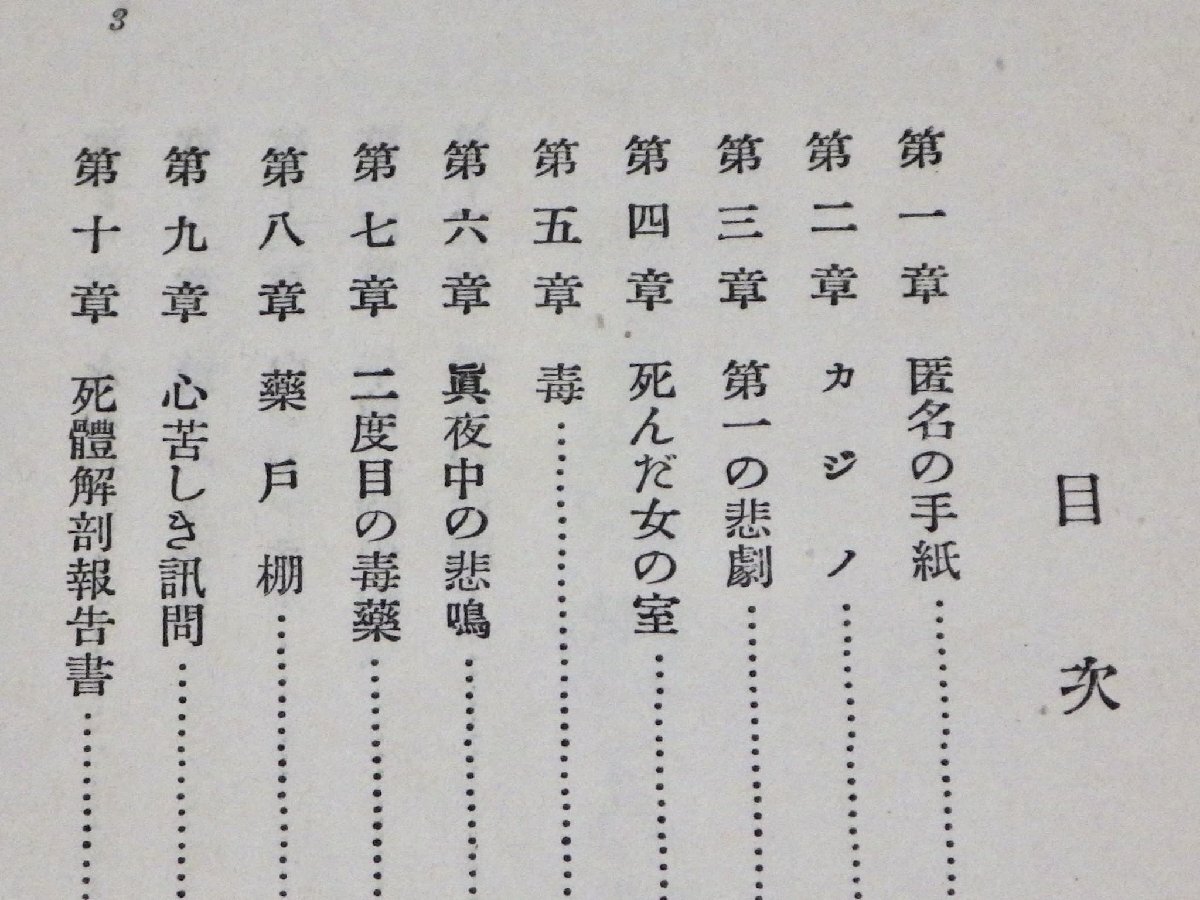 3
目次
第一章 匿名の手紙…………
第二章 カジノ…………
第三章 第一の悲劇…………
第四章 死んだ女の室…………
第五章 毒…………
第六章 眞夜中の悲鳴…………
第七章 二度目の毒藥…………
第八章 藥戸棚…………
第九章 心苦しき訊問…………
第十章 死體解剖報告書…………